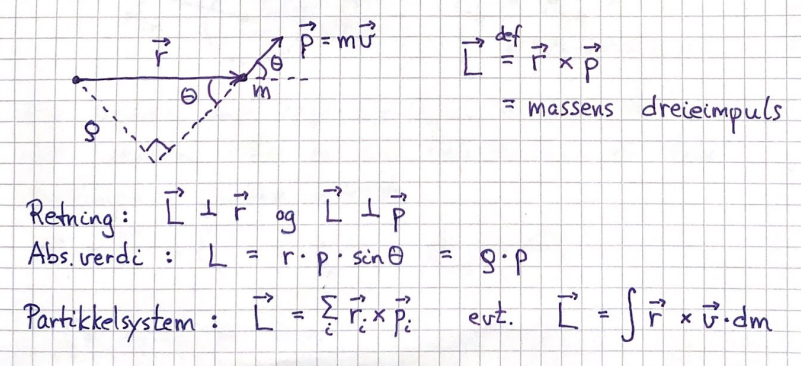 r⃗
p⃗ = mv⃗
θ
θ
m
ρ
L⃗ def= r⃗ × p⃗
= massens dreieimpuls
Retning : L⃗ ⊥ r⃗ og L⃗ ⊥ p⃗
Abs.verdi : L = r · p · sinθ = ρ · p
Partikkelsystem : L⃗ = Σᵢ r⃗ᵢ × p⃗ᵢ evt. L⃗ = ∫ r⃗ × v⃗ · dm